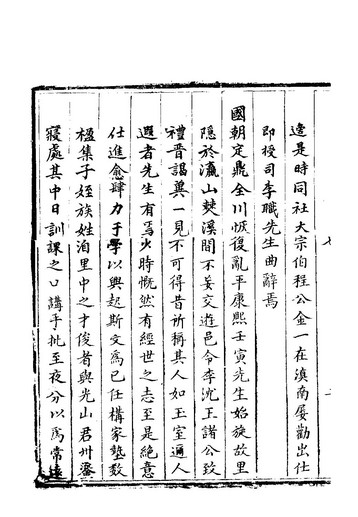 逸是時同社大宗伯程公金一在滇南屡勸出仕
即授司李職先生曲辭焉
國朝定鼎全川恢復亂平康熙壬寅先生始旋故里
隐於灜山㷰溪間不妄交遊邑令李沈王諸公致
禮晋謁冀一見不可得昔所稱其人如玉室邇人
遐者先生有焉少時慨然有經世之志至是絶意
仕進愈肆力于學以興起斯文爲已任構家塾数
楹集子姪族姓洎里中之才俊者與光山君州濬
寢處其中日訓課之口講手批至夜分以爲常遠